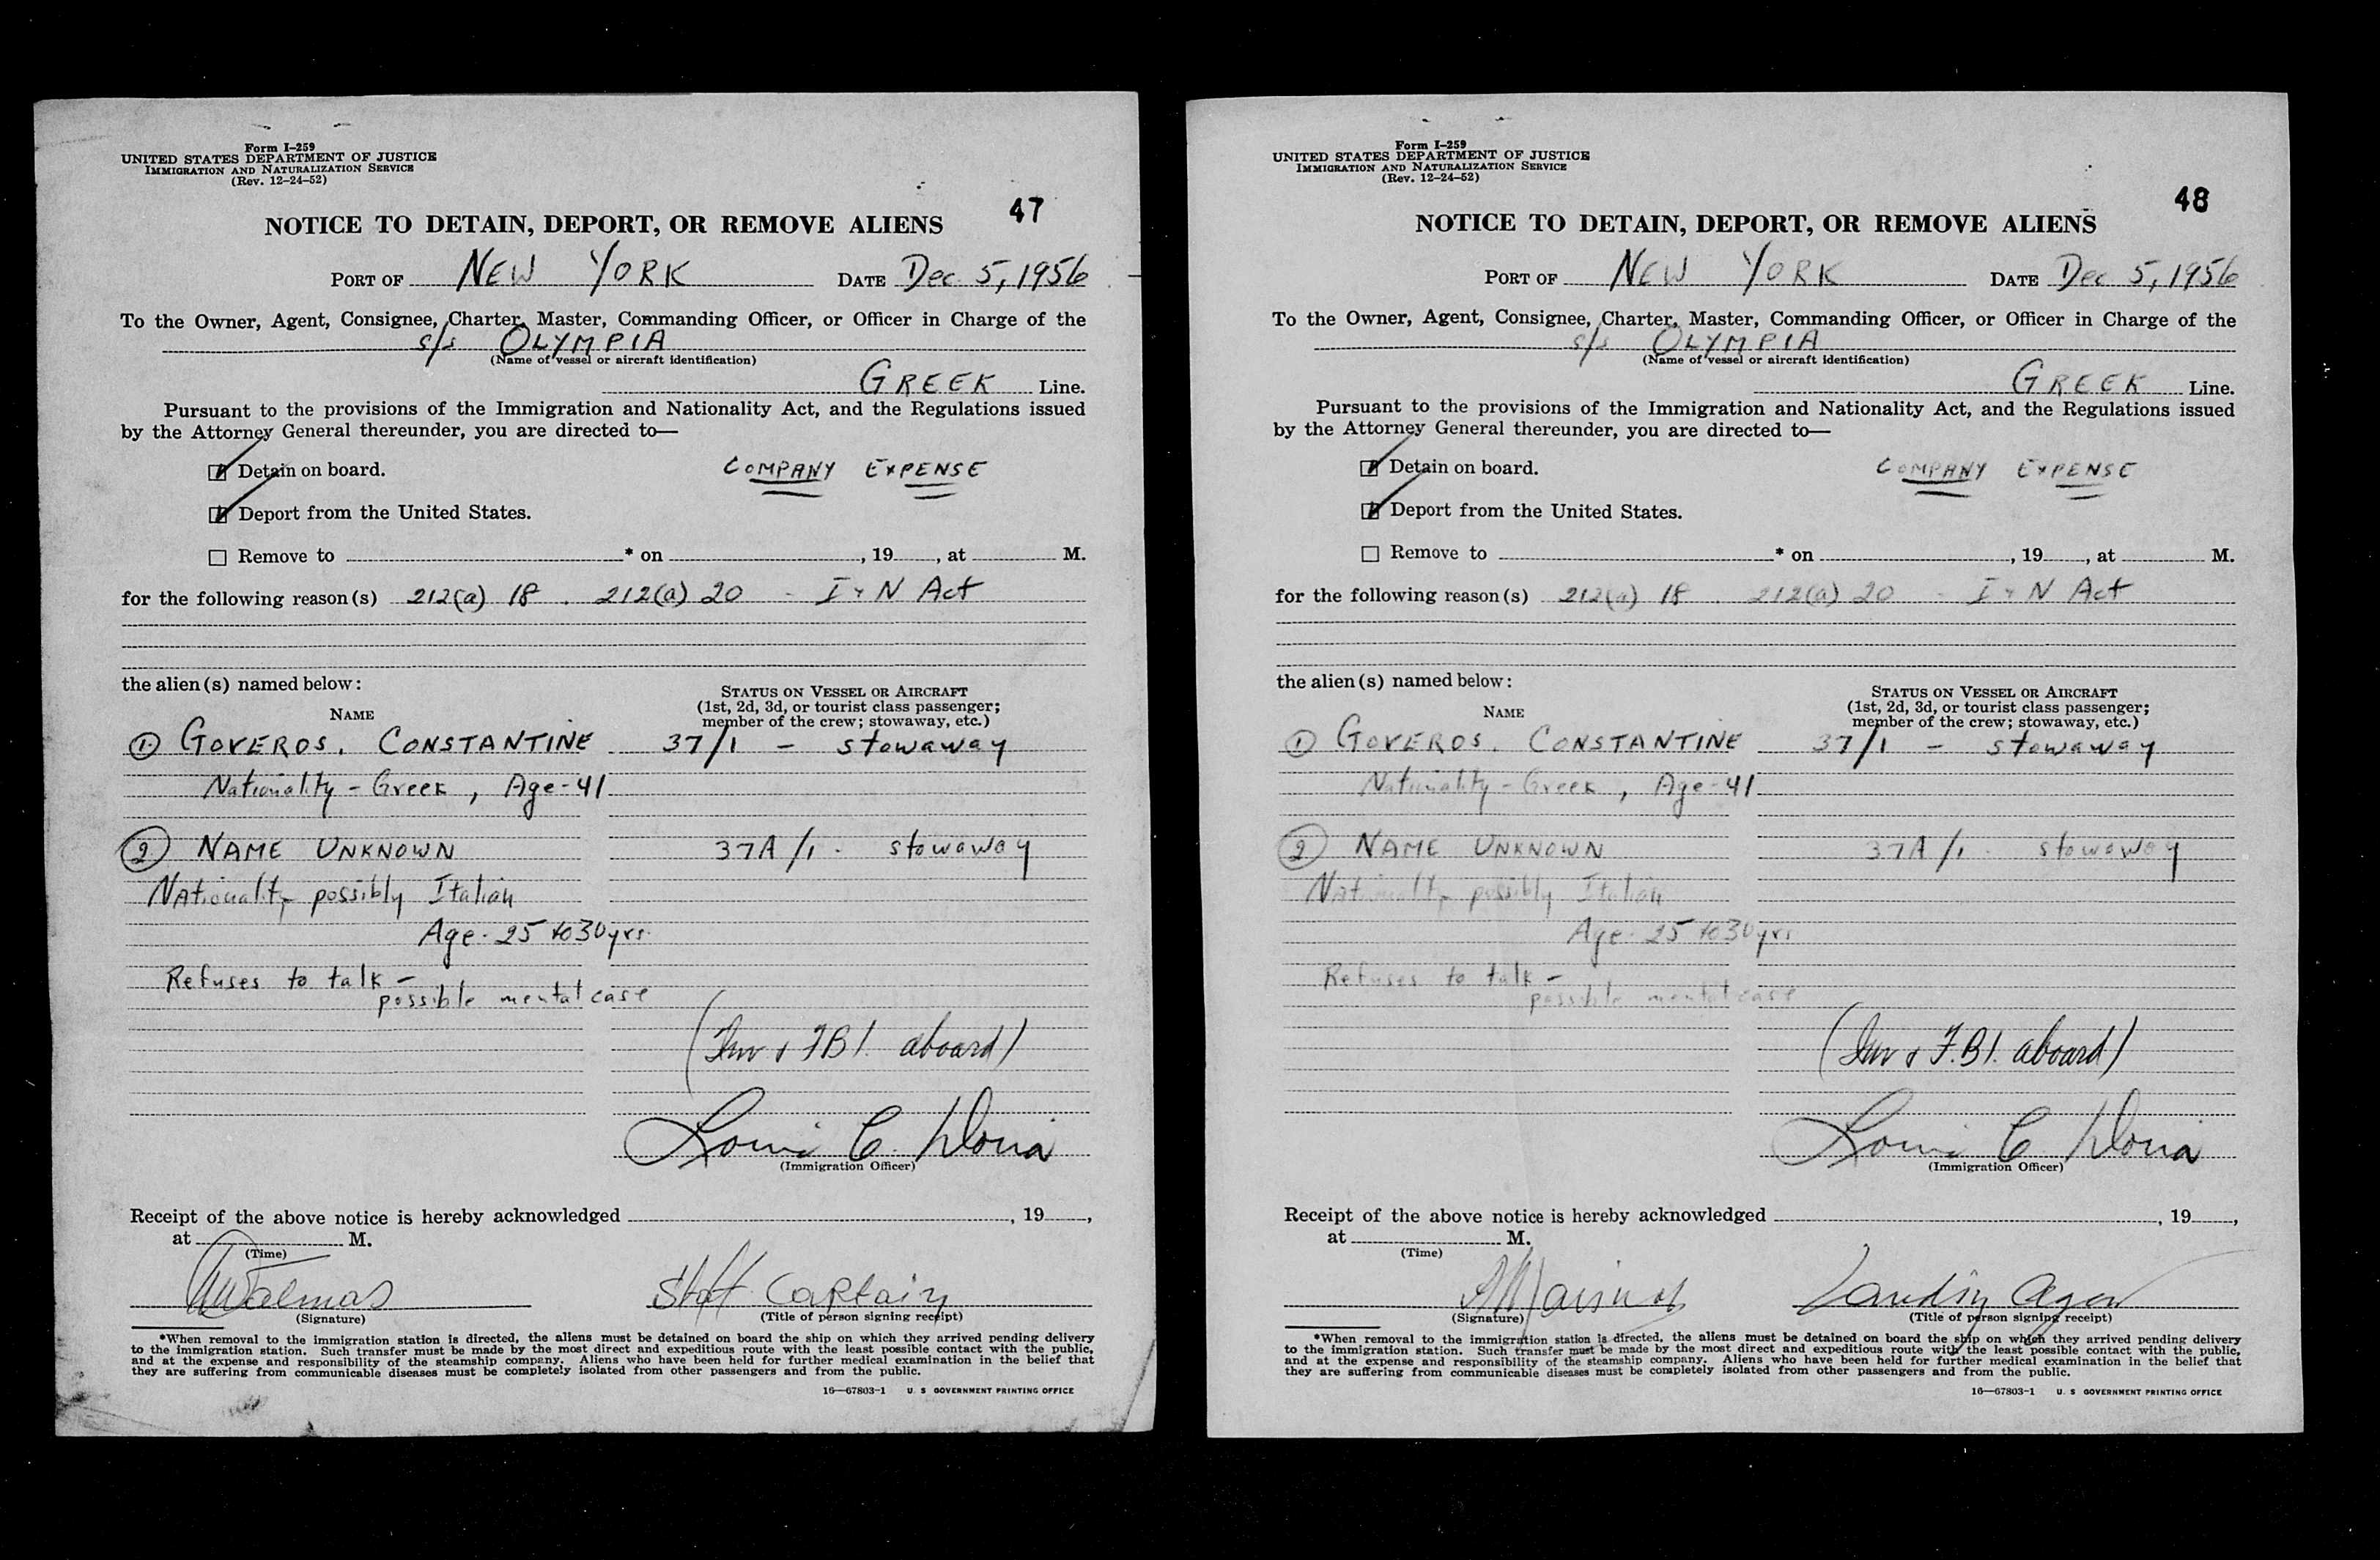 Form I-259
UNITED STATES DEPARTMENT OF JUSTICE
IMMIGRATION AND NATURALIZATION SERVICE
(Rev. 12-24-52)
47
NOTICE TO DETAIN, DEPORT, OR REMOVE ALIENS
PORT OF NEW YORK DATE Dec. 5, 1956
To the Owner, Agent, Consignee, Charter, Master, Commanding Officer, or Officer in Charge of the
s/s OLYMPIA
(Name of vessel or aircraft identification)
GREEK Line.
Pursuant to the provisions of the Immigration and Nationality Act, and the Regulations issued
by the Attorney General thereunder, you are directed to—
Detain on board. COMPANY EXPENSE
Deport from the United States.
Remove to * on , 19 , at M.
for the following reason(s) 212(a) 18 . 212(a) 20 - I & N Act
the alien(s) named below:
NAME
STATUS ON VESSEL OR AIRCRAFT
(1st, 2d, 3d, or tourist class passenger;
member of the crew; stowaway, etc.)
① GOVEROS, CONSTANTINE 37/1 - stowaway
Nationality - Greek, Age - 41
② NAME UNKNOWN 37A/1 - stowaway
Nationality possibly Italian
Age - 25 to 30 yrs.
Refuses to talk -
possible mental case
(Inv & FBI. aboard)
Louis C. Doria
(Immigration Officer)
Receipt of the above notice is hereby acknowledged , 19 ,
at M.
(Time)
Staff Captain
(Signature) (Title of person signing receipt)
*When removal to the immigration station is directed, the aliens must be detained on board the ship on which they arrived pending delivery
to the immigration station. Such transfer must be made by the most direct and expeditious route with the least possible contact with the public,
and at the expense and responsibility of the steamship company. Aliens who have been held for further medical examination in the belief that
they are suffering from communicable diseases must be completely isolated from other passengers and from the public.
16—67803-1 U. S GOVERNMENT PRINTING OFFICE
Form I-259
UNITED STATES DEPARTMENT OF JUSTICE
IMMIGRATION AND NATURALIZATION SERVICE
(Rev. 12-24-52)
48
NOTICE TO DETAIN, DEPORT, OR REMOVE ALIENS
PORT OF NEW YORK DATE Dec 5, 1956
To the Owner, Agent, Consignee, Charter, Master, Commanding Officer, or Officer in Charge of the
s/s OLYMPIA
(Name of vessel or aircraft identification)
GREEK Line.
Pursuant to the provisions of the Immigration and Nationality Act, and the Regulations issued
by the Attorney General thereunder, you are directed to—
Detain on board. COMPANY EXPENSE
Deport from the United States.
Remove to * on , 19 , at M.
for the following reason(s) 212(a) 18 . 212(a) 20 - I & N Act
the alien(s) named below:
NAME
STATUS ON VESSEL OR AIRCRAFT
(1st, 2d, 3d, or tourist class passenger;
member of the crew; stowaway, etc.)
① GOVEROS, CONSTANTINE 37/1 - stowaway
Nationality - Greek, Age - 41
② NAME UNKNOWN 37A/1 - stowaway
Nationality possibly Italian
Age - 25 to 30 yrs
Refuses to talk -
possible mental case
(Inv & F.B.I. aboard)
Louis C. Doria
(Immigration Officer)
Receipt of the above notice is hereby acknowledged , 19 ,
at M.
(Time)
(Signature) (Title of person signing receipt)
*When removal to the immigration station is directed, the aliens must be detained on board the ship on which they arrived pending delivery
to the immigration station. Such transfer must be made by the most direct and expeditious route with the least possible contact with the public,
and at the expense and responsibility of the steamship company. Aliens who have been held for further medical examination in the belief that
they are suffering from communicable diseases must be completely isolated from other passengers and from the public.
16—67803-1 U. S GOVERNMENT PRINTING OFFICE